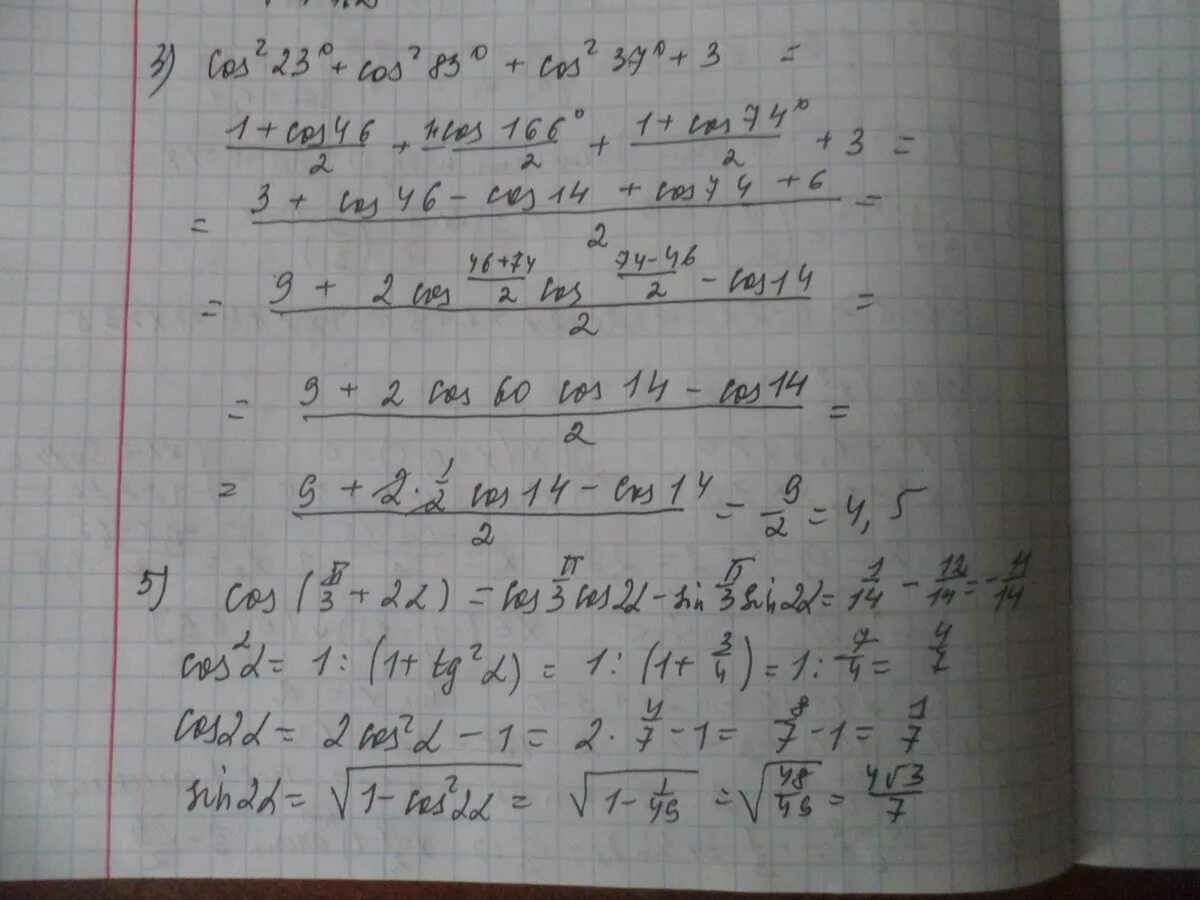 3) cos² 23° + cos² 83° + cos² 37° + 3 =
(1 + cos 46)/2 + (1 + cos 166°)/2 + (1 + cos 74°)/2 + 3 =
= (3 + cos 46 - cos 14 + cos 74 + 6)/2 =
= (9 + 2 cos (46+74)/2 cos (74-46)/2 - cos 14)/2 =
= (9 + 2 cos 60 cos 14 - cos 14)/2 =
= (9 + 2 · 1/2 cos 14 - cos 14)/2 = 9/2 = 4,5
5) cos (π/3 + 2α) = cos π/3 cos 2α - sin π/3 sin 2α = 1/14 - 12/14 = -11/14
cos² α = 1 : (1 + tg² α) = 1 : (1 + 3/4) = 1 : 7/4 = 4/7
cos 2α = 2 cos² α - 1 = 2 · 4/7 - 1 = 8/7 - 1 = 1/7
sin 2α = √(1 - cos² 2α) = √(1 - 1/49) = √(48/49) = 4√3/7